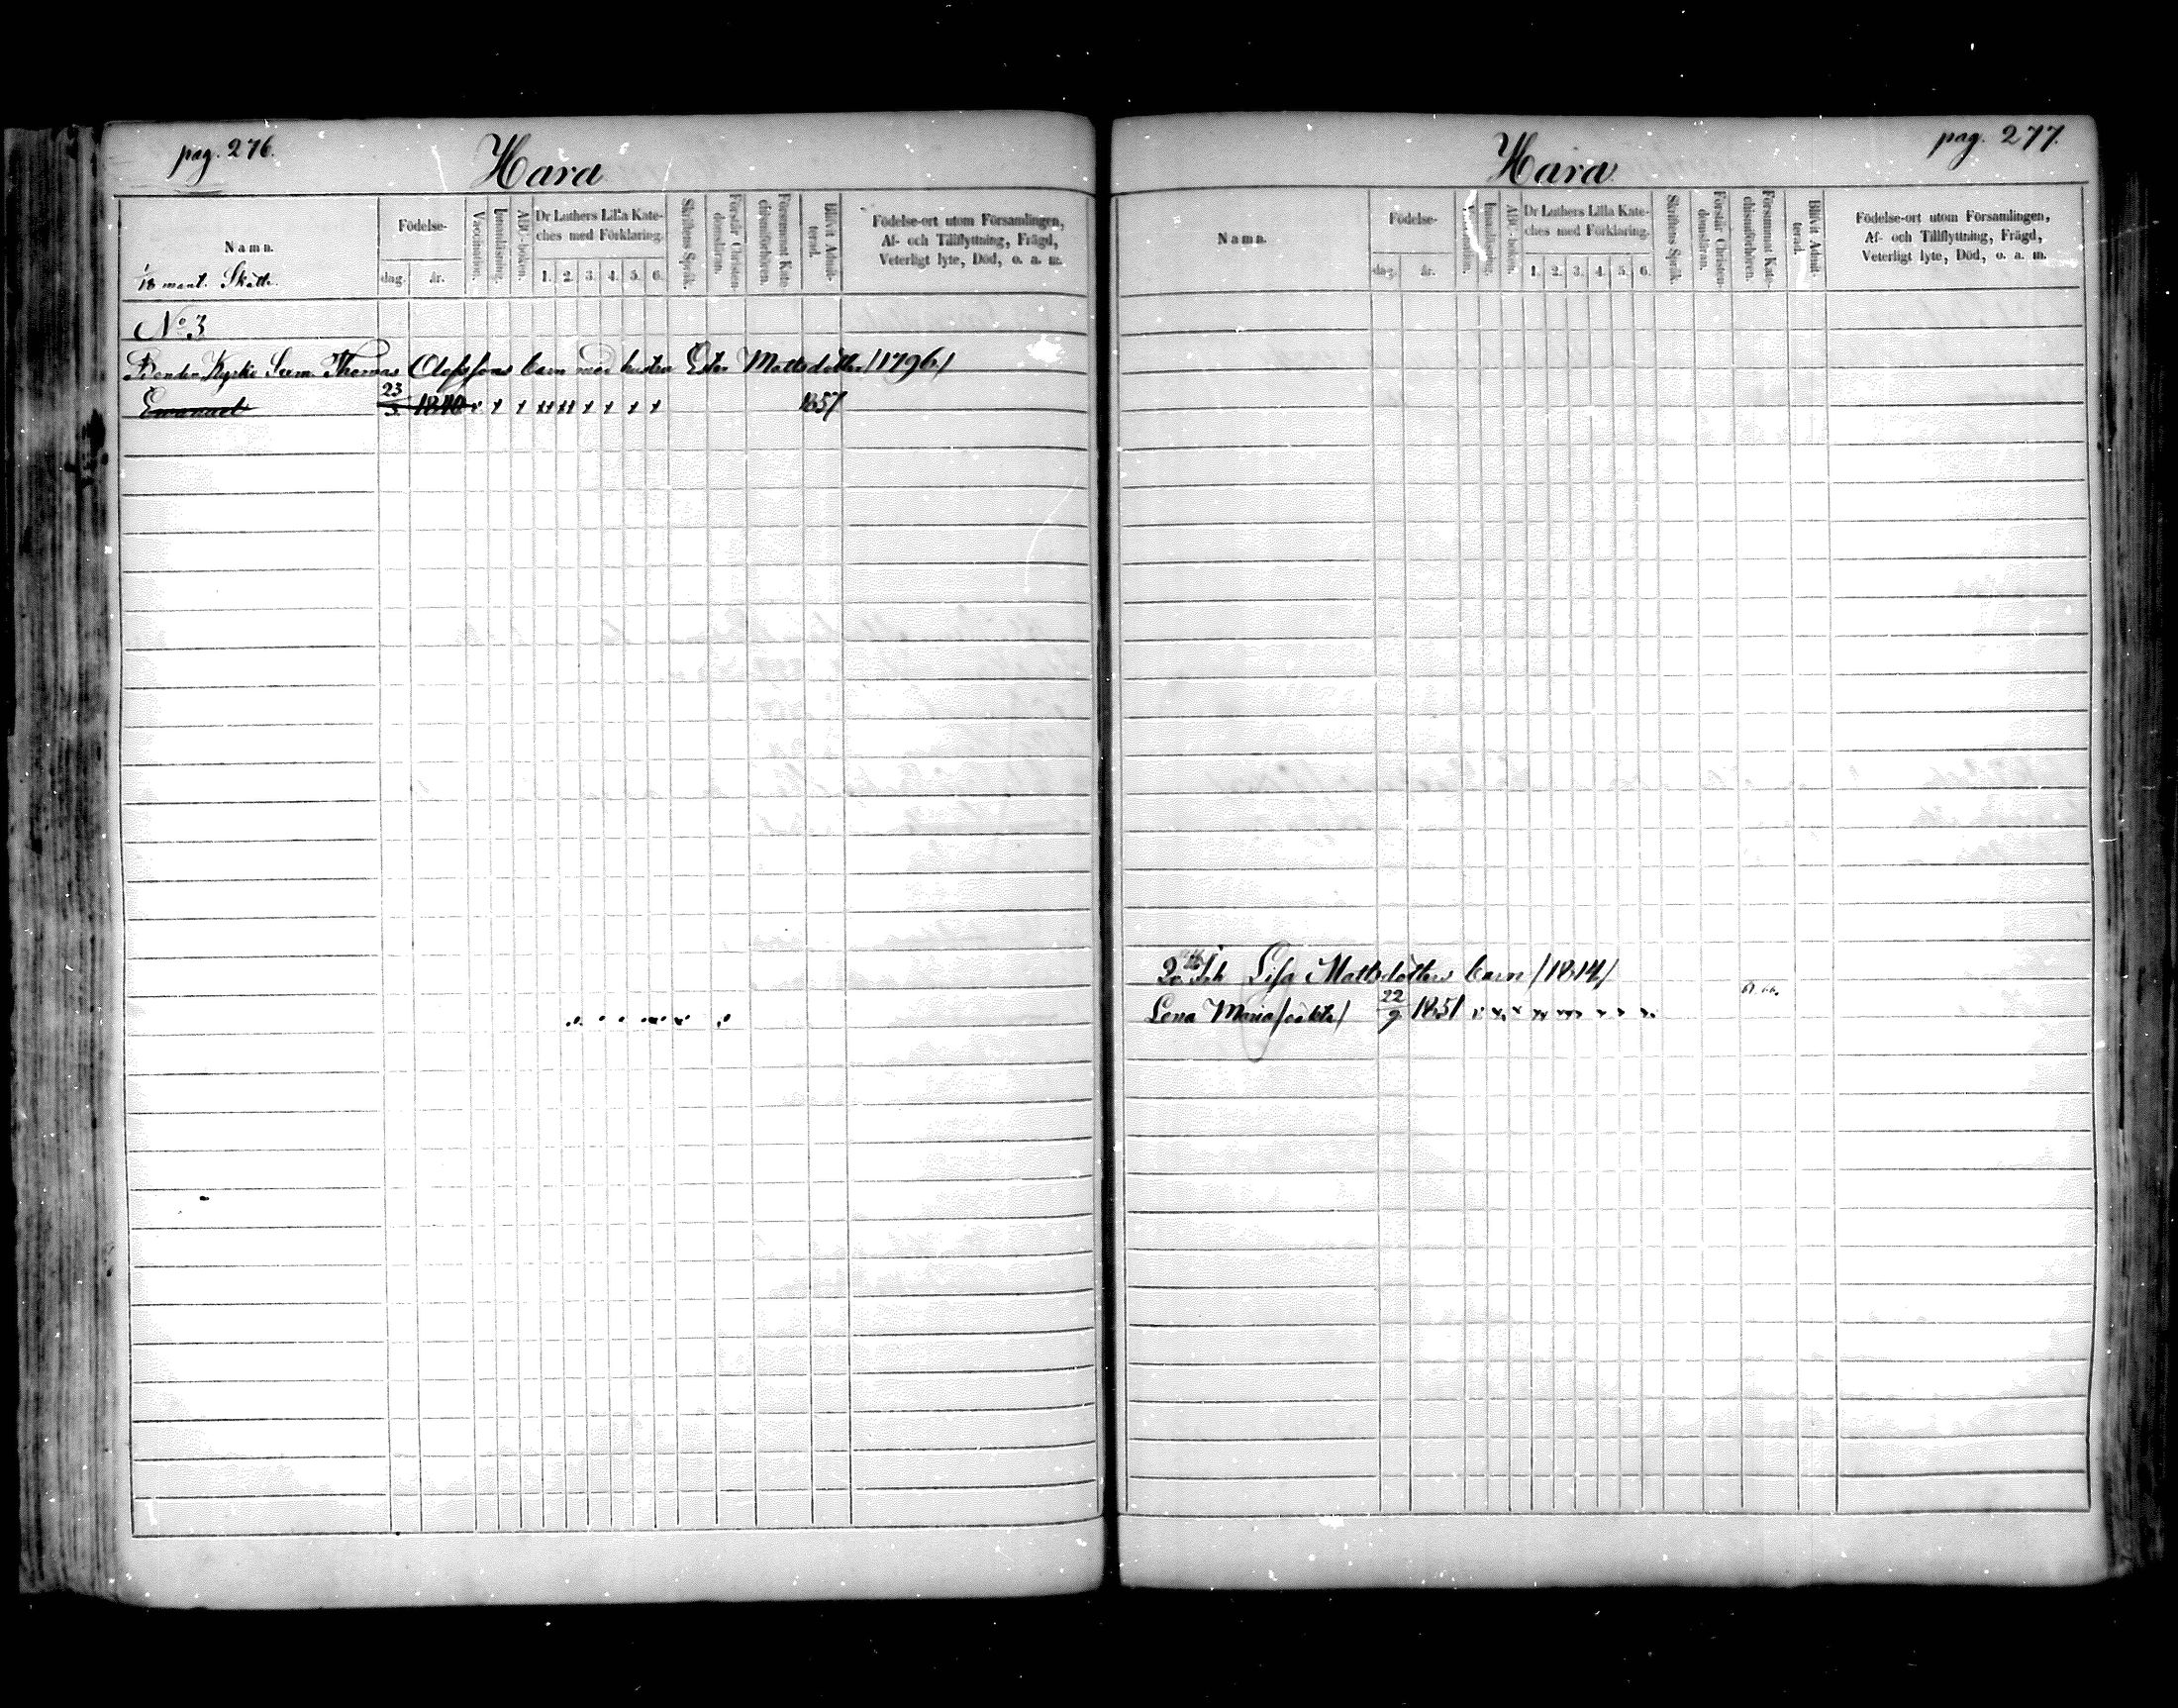 pag. 276.
Hara
Namn.
1/18 mant. Skatte.
Födelse-
dag.
år.
Vaccination.
Innanläsning.
ABC-boken.
Dr Luthers Lilla Kate-
ches med Förklaring.
1. 2. 3. 4. 5. 6.
Skriftens Språk.
Förstår Christen-
domsläran.
Försummat Kate-
chismiförhören.
Blifvit Admit-
terad.
Födelse-ort utom Församlingen,
Af- och Tillflyttning, Frägd,
Veterligt lyte, Död, o. a. m.
No 3
Bonden Kyrko Svem. Thomas Olofssons barn med hustru Ester Mattsdotter /1796/
Emanuel 23/3 1840 1857
pag. 277.
Hara
Namn.
Födelse-
dag.
år.
Innanläsning.
ABC-boken.
Dr Luthers Lilla Kate-
ches med Förklaring.
1. 2. 3. 4. 5. 6.
Skriftens Språk.
Förstår Christen-
domsläran.
Försummat Kate-
chismiförhören.
Blifvit Admit-
terad.
Födelse-ort utom Församlingen,
Af- och Tillflyttning, Frägd,
Veterligt lyte, Död, o. a. m.
Lisa Mattsdotters barn /1814/
Lena Maria /oäkta/ 22/9 1851